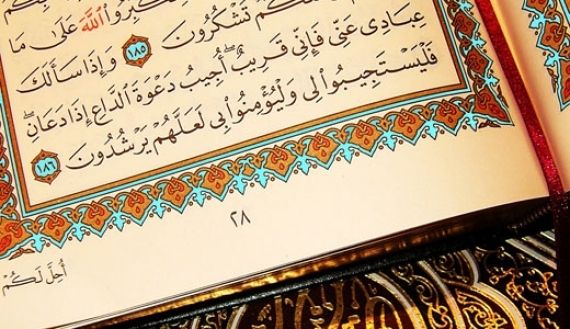 ـكَبِّرُوا۟ ٱللَّهَ عَلَىٰ مَا
ـكُمْ تَشْكُرُونَ ١٨٥ وَإِذَا سَأَلَكَ
عِبَادِى عَنِّى فَإِنِّى قَرِيبٌ ۖ أُجِيبُ دَعْوَةَ ٱلدَّاعِ إِذَا دَعَانِ ۖ
فَلْيَسْتَجِيبُوا۟ لِى وَلْيُؤْمِنُوا۟ بِى لَعَلَّهُمْ يَرْشُدُونَ ١٨٦
٢٨
أُحِلَّ لَكُمْ